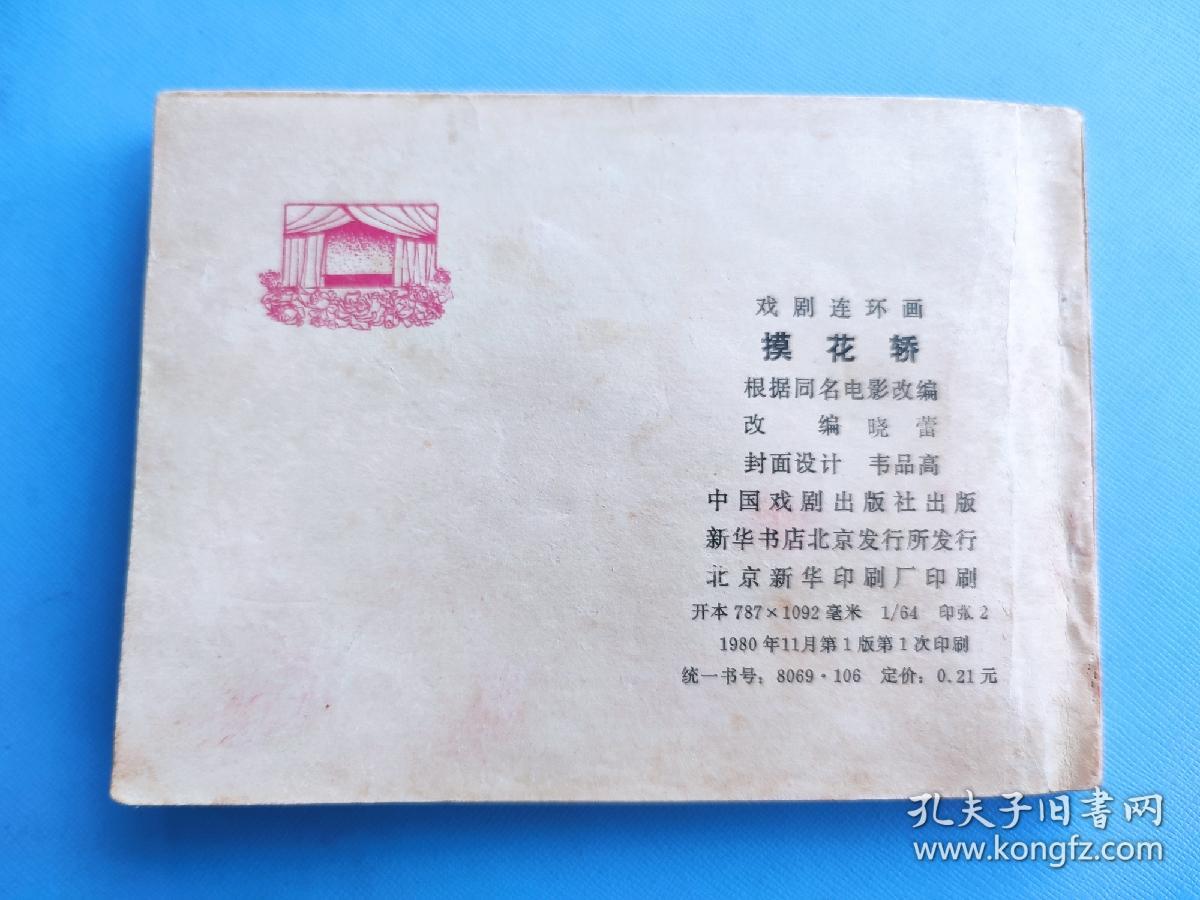 戏剧连环画
摸花轿
根据同名电影改编
改 编 晓 蕾
封面设计 韦品高
中国戏剧出版社出版
新华书店北京发行所发行
北京新华印刷厂印刷
开本787×1092毫米 1/64 印张2
1980年11月第1版第1次印刷
统一书号：8069·106 定价：0.21元
孔夫子旧书网
www.kongfz.com